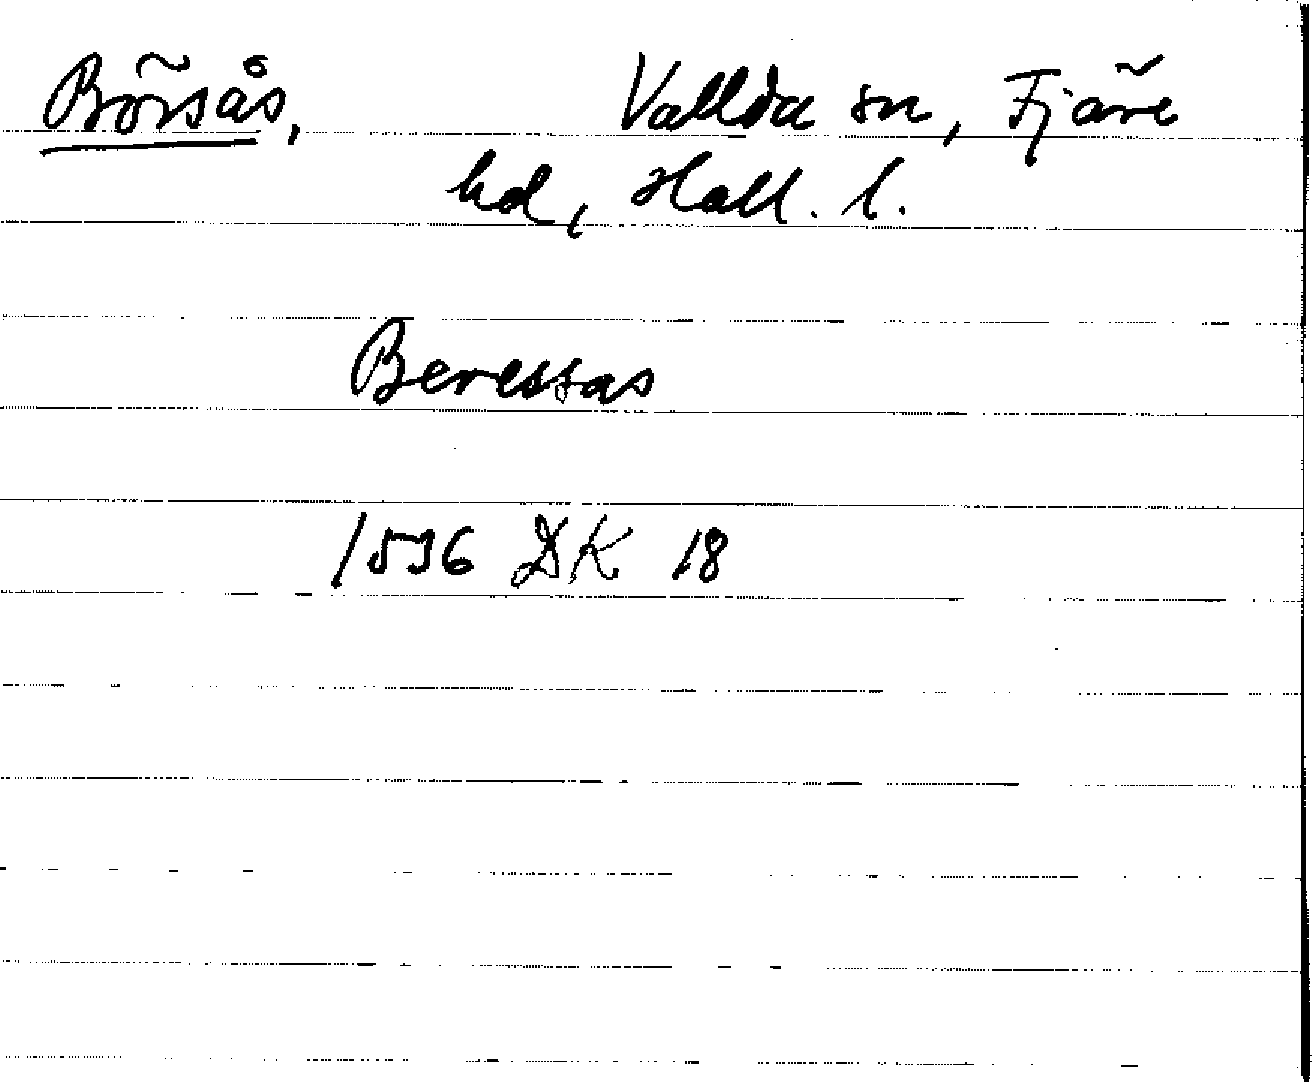 Börsås, Vallda sn, Fjäre
hd, Hall. l.
Beressas
1536 DK 18